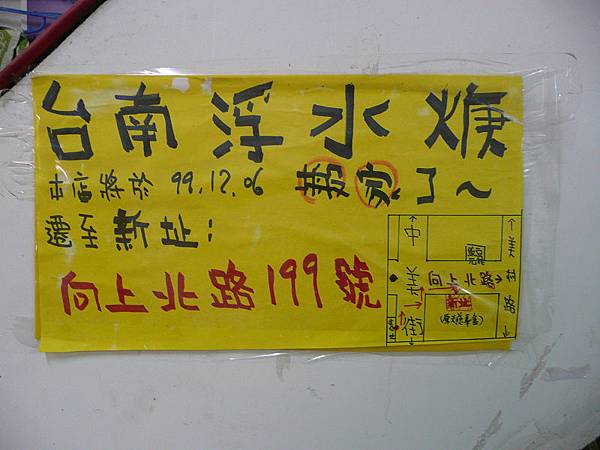 台南浮水焿
本店將於 99.12.06 搬家
遷至新址:
向上北路199號
中美街
向上北路
美村路
新址